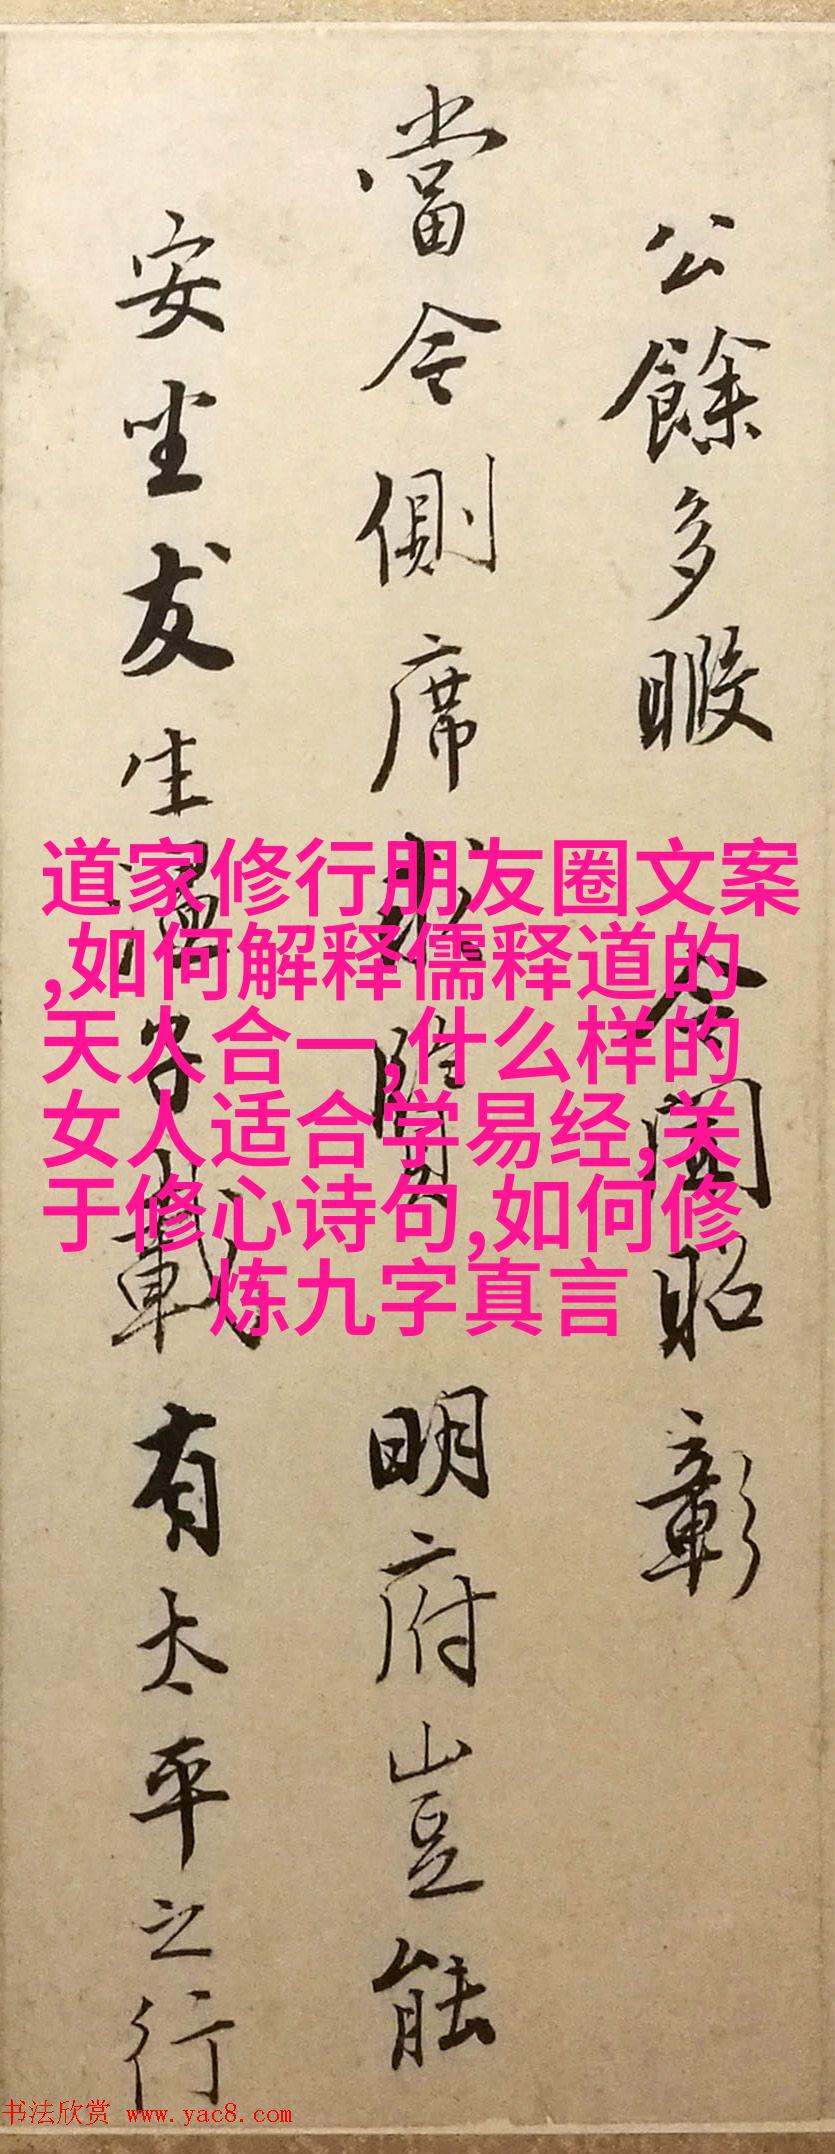 公餘多暇
令闻昭彰
當今側席求賢
明府豈能
安坐友生
有太平之行
道家修行朋友圈文案
,如何解释儒释道的
天人合一,什么样的
女人适合学易经,关
于修心诗句,如何修
炼九字真言
书法欣赏 www.yac8.com